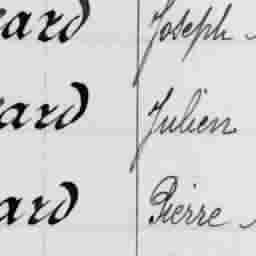 ard Joseph
ard Julien
ard Pierre